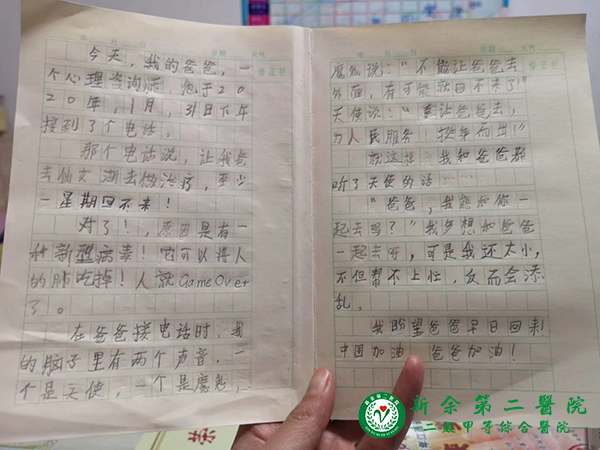 今天，我的爸爸，一
个心理咨询师，他于20
20年，1月，31日下午
接到了个电话。
那个电话说，让我爸
去仙女湖去做治疗，至少
一星期回不来！
对了！，原因是有一
种新型病毒！它可以将人
的肺吃掉！人就GameOver
了。
在爸爸接电话时，我
的脑子里有两个声音，一
个是天使，一个是魔鬼，
魔鬼说："不能让爸爸去
外面，有可能就回不来了！"
天使说："要让爸爸去，
为人民服务！挺身而出！"
就这样……我和爸爸都
听了天使的话……
"爸爸，我能和你一
起去吗？"我多想和爸爸
一起去呀，可是我还太小，
不但帮不上忙，反而会添
乱。
我盼望爸爸早日回来！
中国加油 爸爸加油！
新余第二醫院
二级甲等綜合醫院